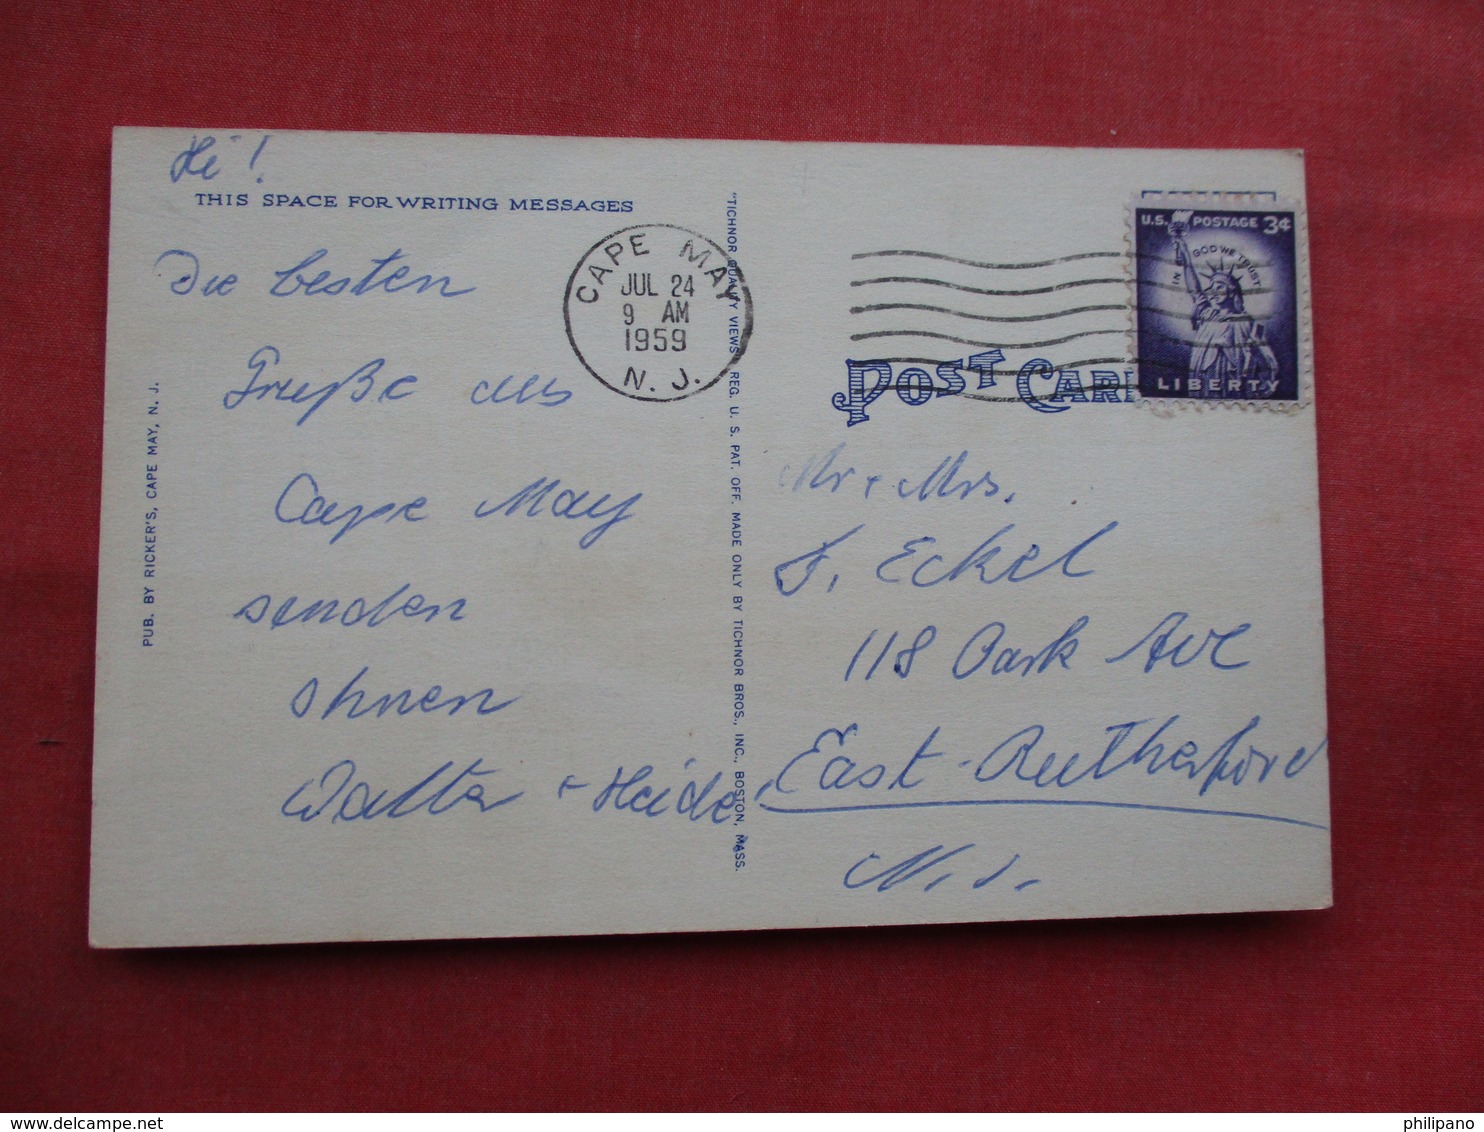 Hi!
THIS SPACE FOR WRITING MESSAGES
Die besten
Grüße aus
Cape May
senden
Ihnen
Walter + Heide.
PUB. BY RICKER'S, CAPE MAY, N. J.
CAPE MAY
JUL 24
9 AM
1959
N. J.
"TICHNOR QUALITY VIEWS" REG. U. S. PAT. OFF. MADE ONLY BY TICHNOR BROS., INC., BOSTON, MASS.
U.S. POSTAGE 3¢
IN GOD WE TRUST
LIBERTY
POST CAR
Mr + Mrs.
F. Eckel
118 Park Ave
East-Rutherford
N. J.
delcampe.net
philipano